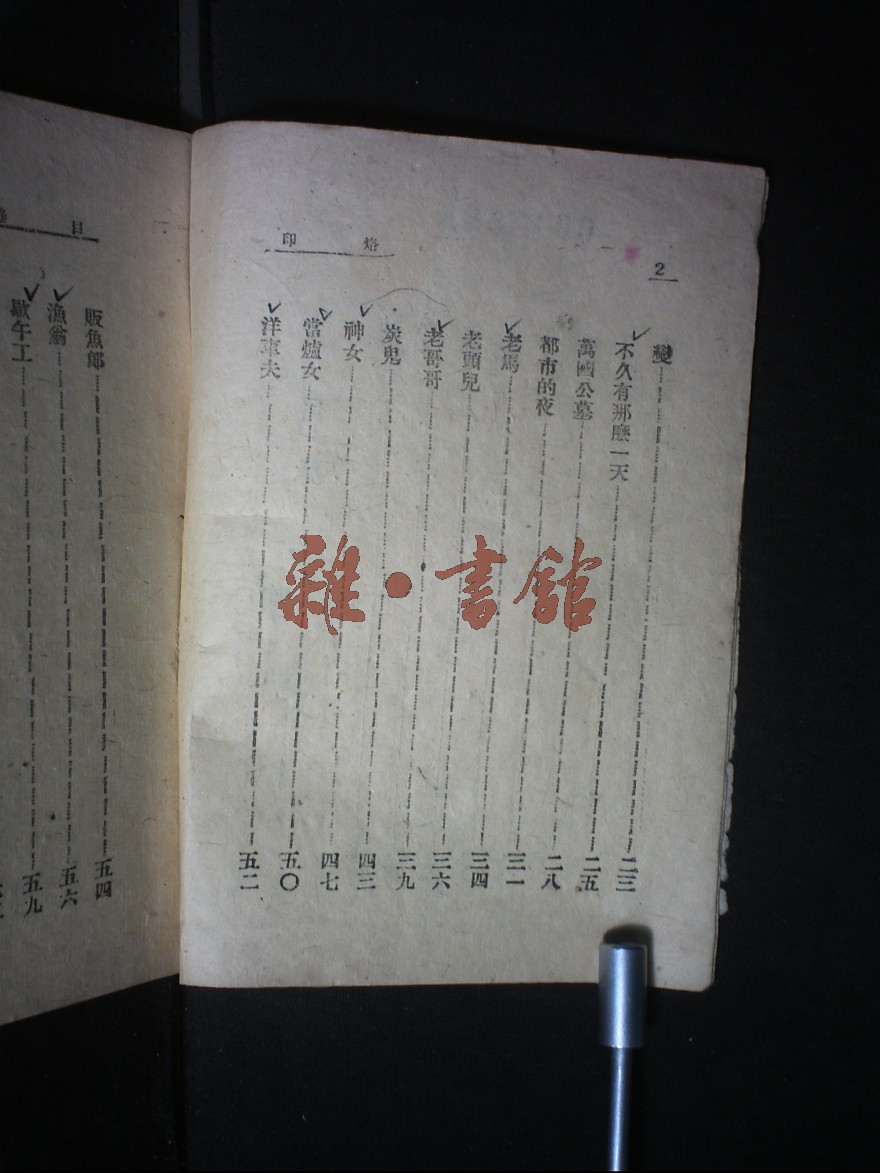 2
烙印
變 二三
不久有那麽一天 二五
萬國公墓 二八
都市的夜 三一
老馬 三四
老頭兒 三六
老哥哥 三九
炭鬼 四三
神女 四七
當爐女 五〇
洋車夫 五二
目
販魚郎 五四
漁翁 五六
歇午工 五九
雜·書館